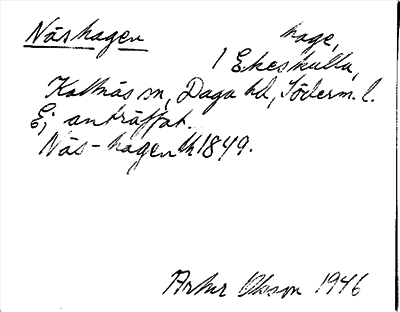 Näshagen hage,
1 Ekeskulla,
Kattnäs sn, Daga hd, Söderm. l.
Ej anträffat.
Näs-hagen 1849.
Artur Olsson 1946